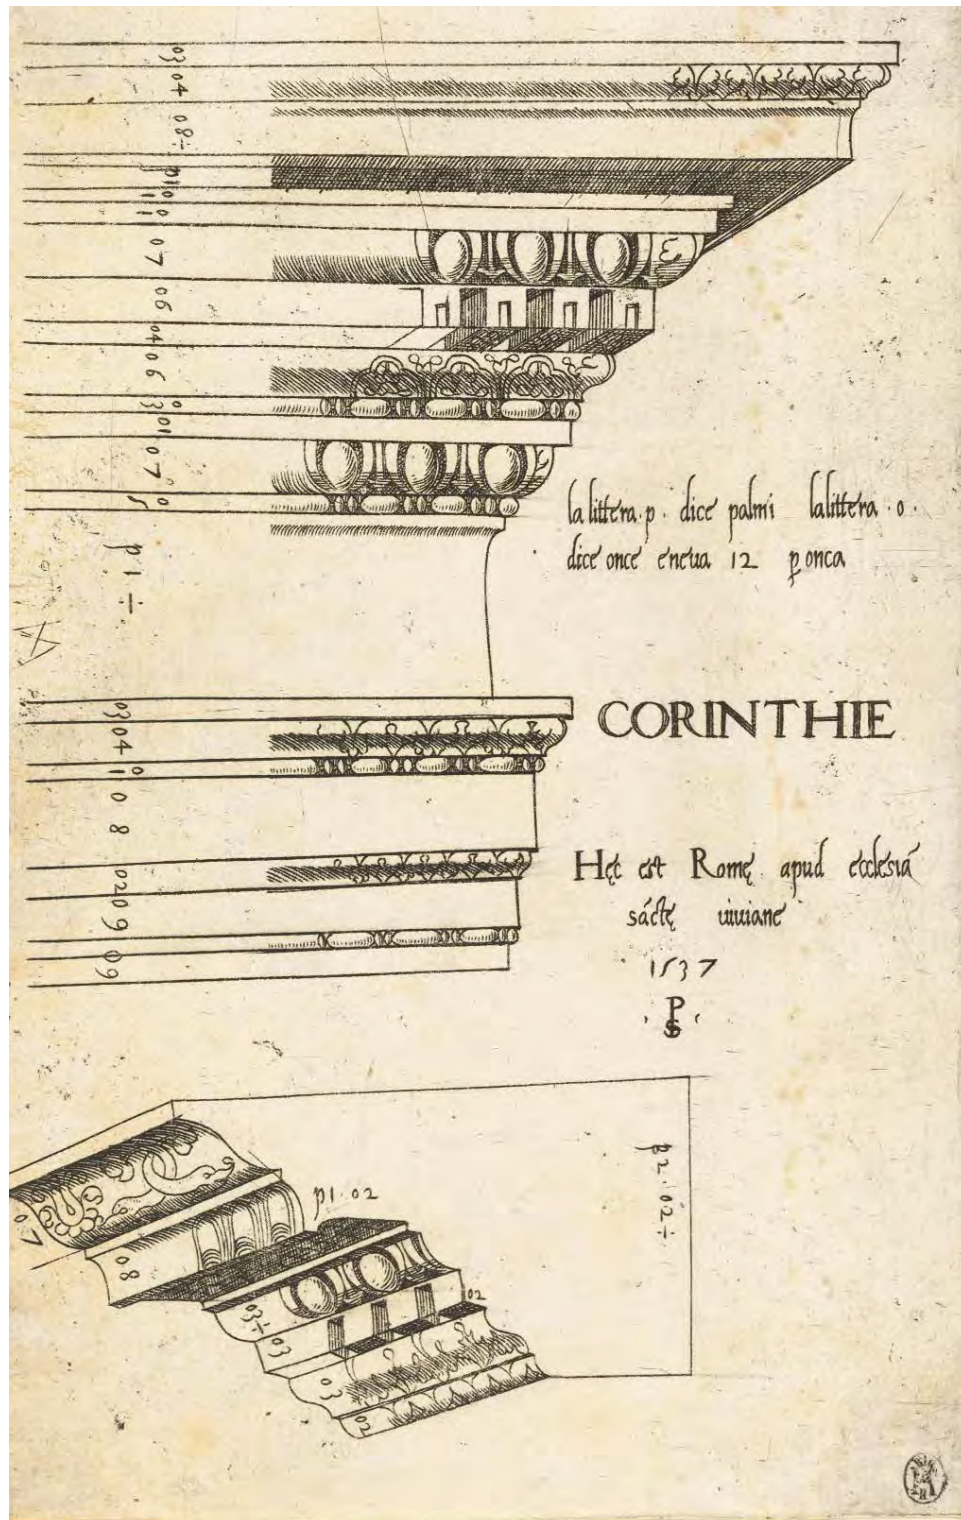 03
04
08÷
p1
01
01
07
06
04
06
3
01
07
5
p1÷
la littera · p · dice palmi lalittera · o ·
dice once eneua 12 p̱ onca
CORINTHIE
03
04
1
08
02
09
09
Hęc est Romę apud ecclesiā
sāctę uiuiane
1537
PS
p2·02÷
p1·02
07
08
03÷
03
02
03
02